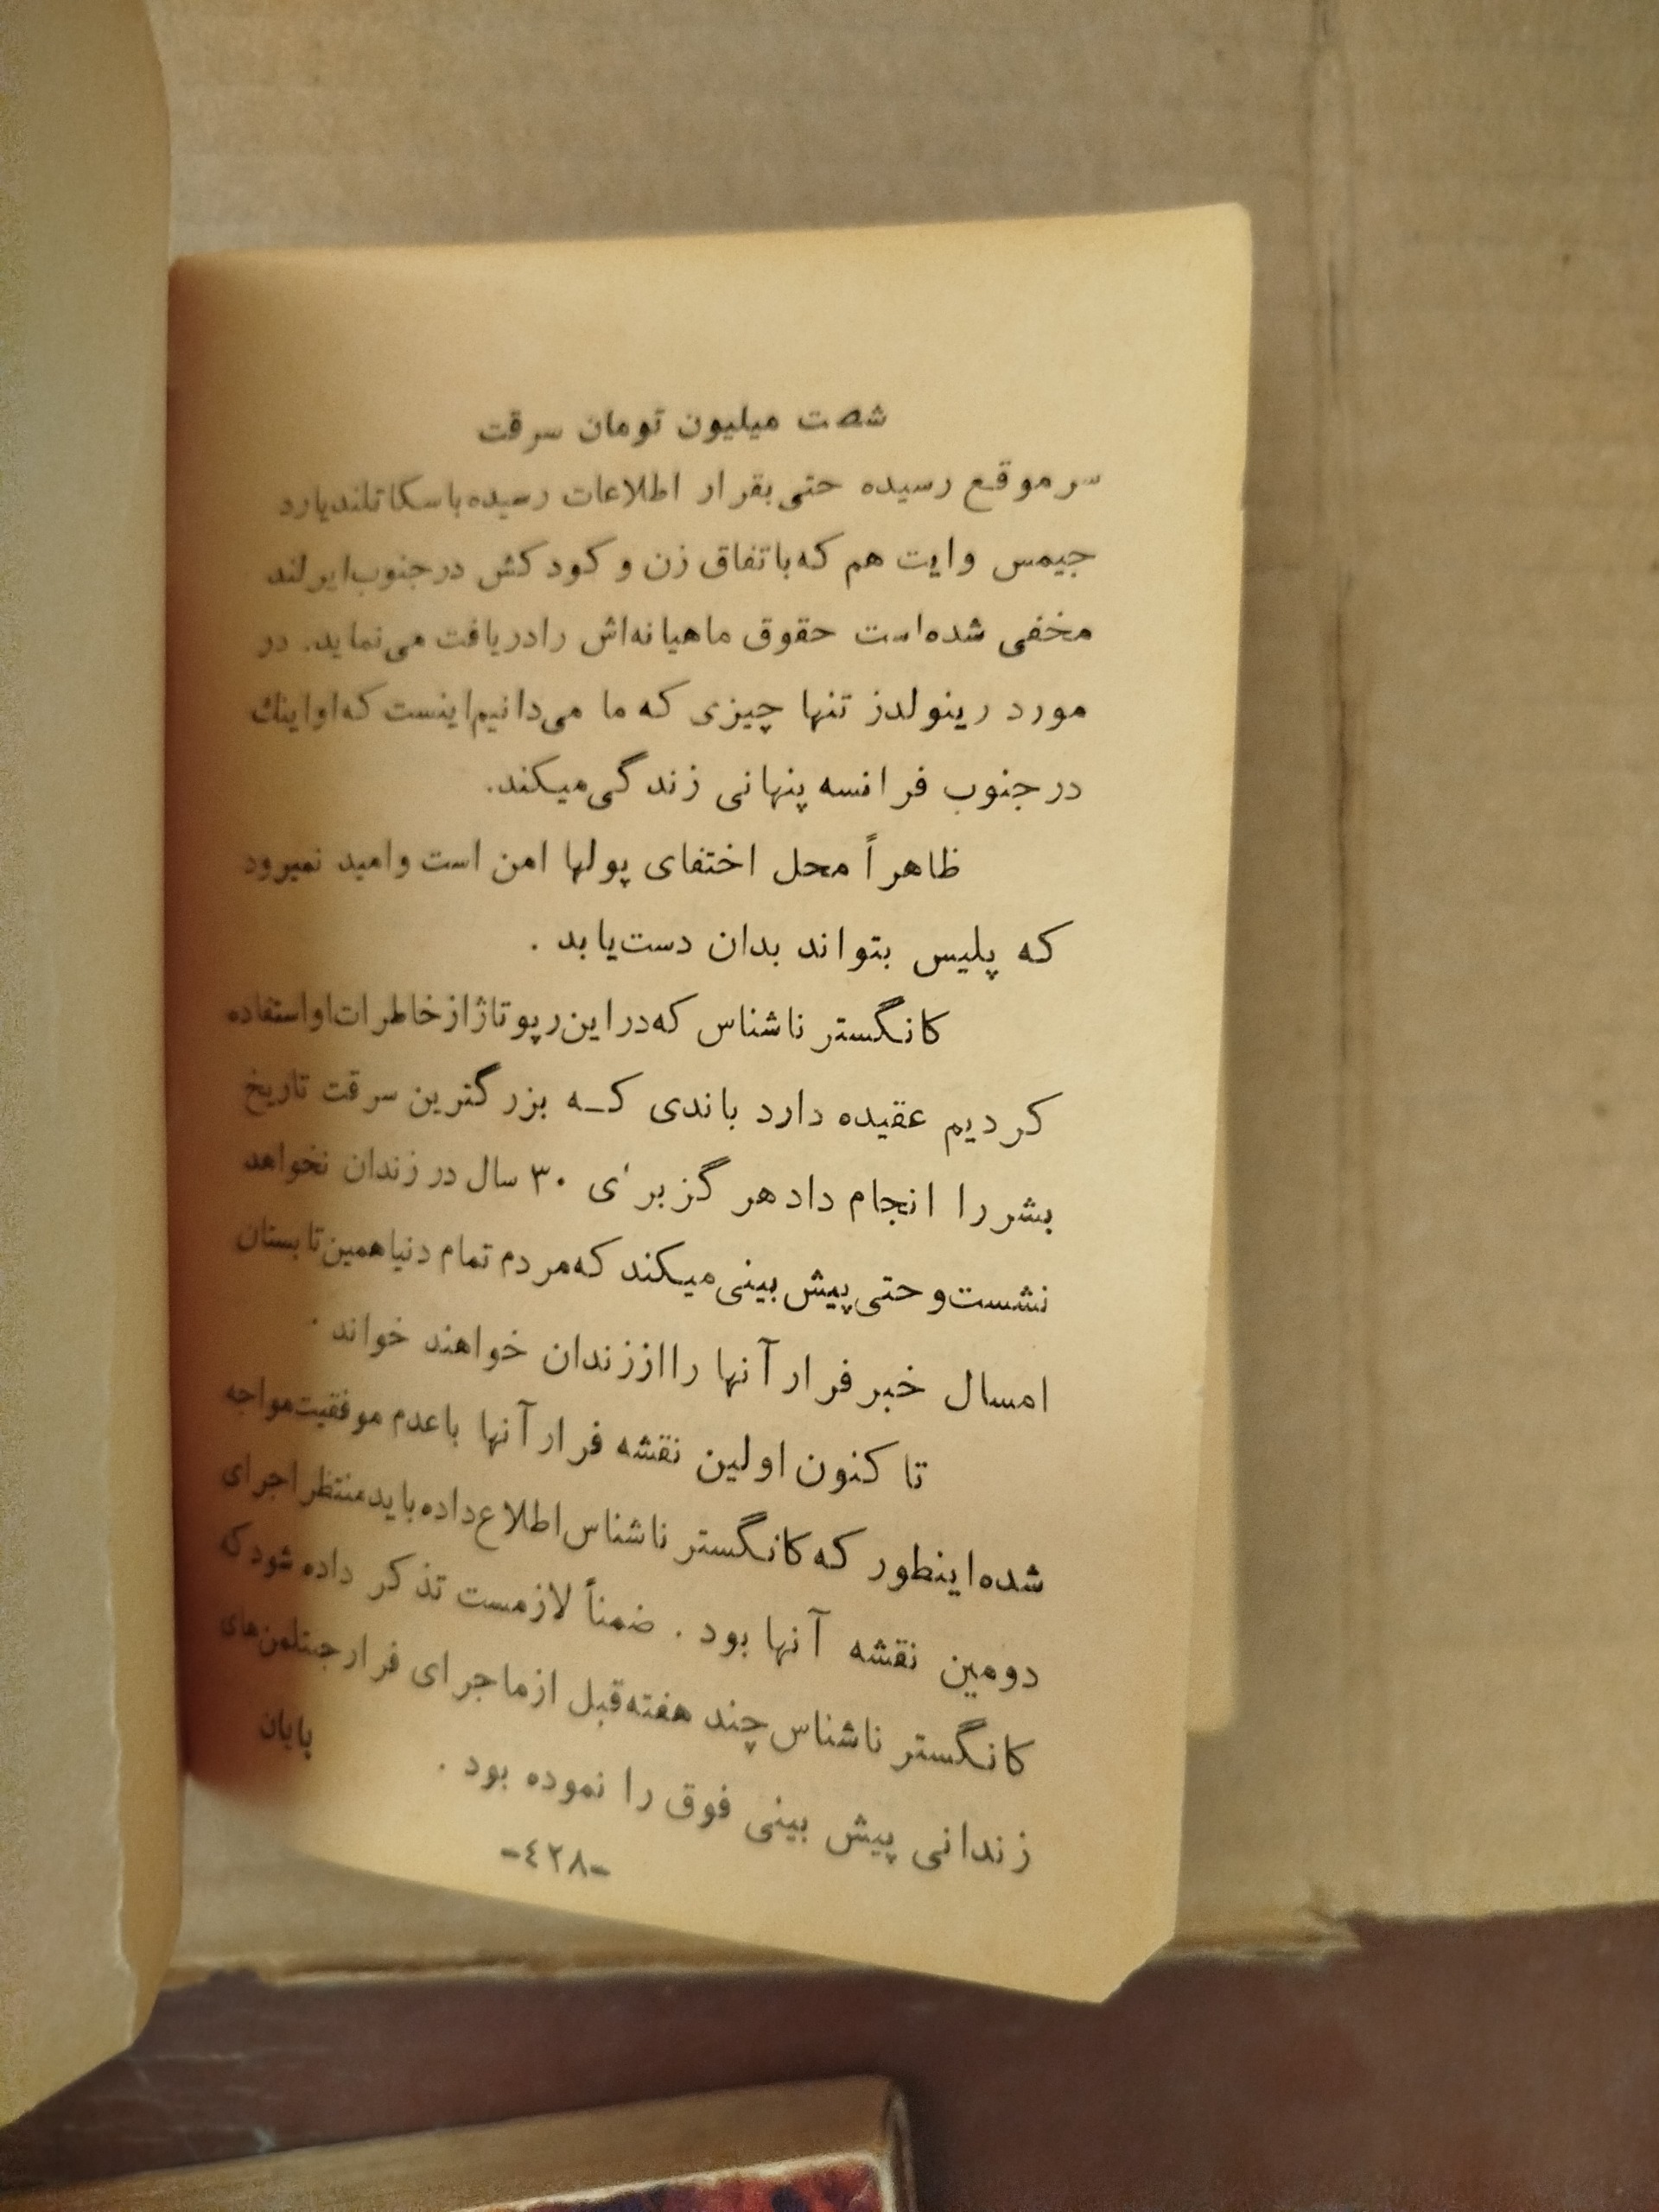 شصت میلیون تومان سرقت
سر موقع رسیده حتی بقرار اطلاعات رسیده باسکاتلندیارد
جیمس وایت هم که باتفاق زن و کودکش درجنوب ایرلند
مخفی شده است حقوق ماهیانه‌اش رادریافت می‌نماید. در
مورد رینولدز تنها چیزی که ما می‌دانیم اینست که او اینك
در جنوب فرانسه پنهانی زندگی میکند.
ظاهراً محل اختفای پولها امن است و امید نمیرود
که پلیس بتواند بدان دست‌یابد .
کانگستر ناشناس که در این رپوتاژ از خاطرات او استفاده
کردیم عقیده دارد باندی کـه بزرگترین سرقت تاریخ
بشر را انجام داد هرگز برای ۳۰ سال در زندان نخواهد
نشست و حتی پیش بینی میکند که مردم تمام دنیا همین تابستان
امسال خبر فرار آنها را از زندان خواهند خواند .
تا کنون اولین نقشه فرار آنها باعدم موفقیت مواجه
شده اینطور که کانگستر ناشناس اطلاع داده باید منتظر اجرای
دومین نقشه آنها بود . ضمناً لازمست تذکر داده شود که
کانگستر ناشناس چند هفته قبل از ماجرای فرار جنتلمن‌های
زندانی پیش بینی فوق را نموده بود .
پایان
-٤٢٨-